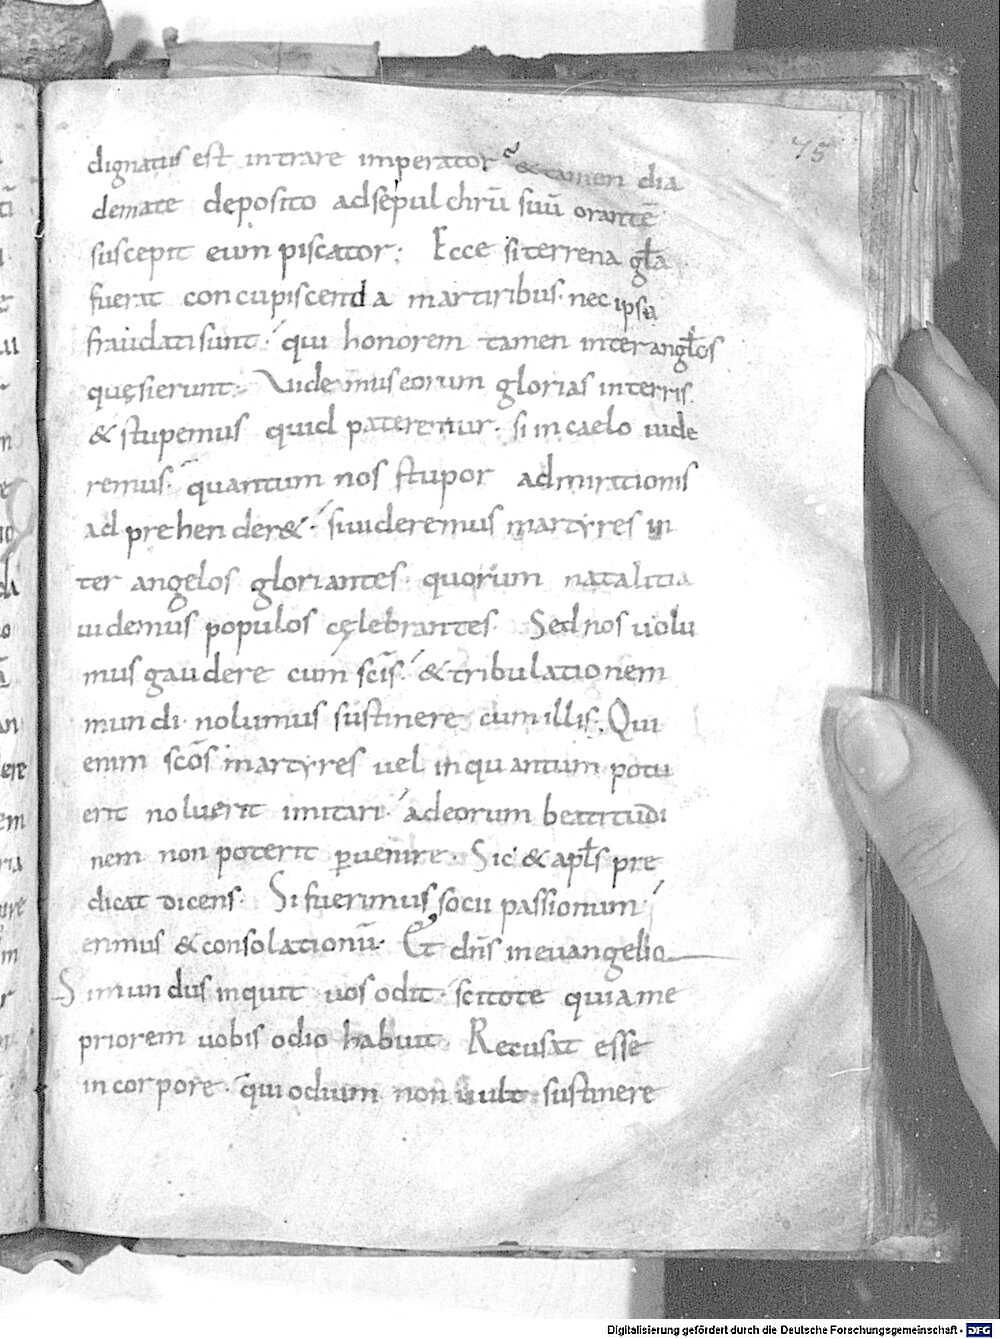 75
dignatus est intrare imperator & tamen dia
demate deposito ad sepulchrū suū orantē
suscepit eum piscator; Ecce si terrena gła
fuerit concupiscenda martiribus. nec ipsa
fraudati sunt. qui honorem tamen inter angłos
quęsierunt. Uidemus eorum glorias in terris.
& stupemus quid pateremur. si in caelo uide
remus. quantum nos stupor admirationis
adprehender&. si uideremus martyres in
ter angelos gloriantes. quorum natalitia
uidemus populos cęlebrantes. Sed nos uolu
mus gaudere cum scīs. & tribulationem
mundi nolumus sustinere cum illis; Qui
enim scōs martyres uel inquantum potu
erit noluerit imitari. ad eorum beatitudi
nem non poterit ꝑuenire. Sic & apłs pre
dicat dicens. Si fuerimus socii passionum
erimus & consolationū. Et dn̄s in euangelio
Si mundus inquit uos odit. scitote quia me
priorem uobis odio habuit. Recusat esse
in corpore. qui odium non uult sustinere
Digitalisierung gefördert durch die Deutsche Forschungsgemeinschaft - DFG